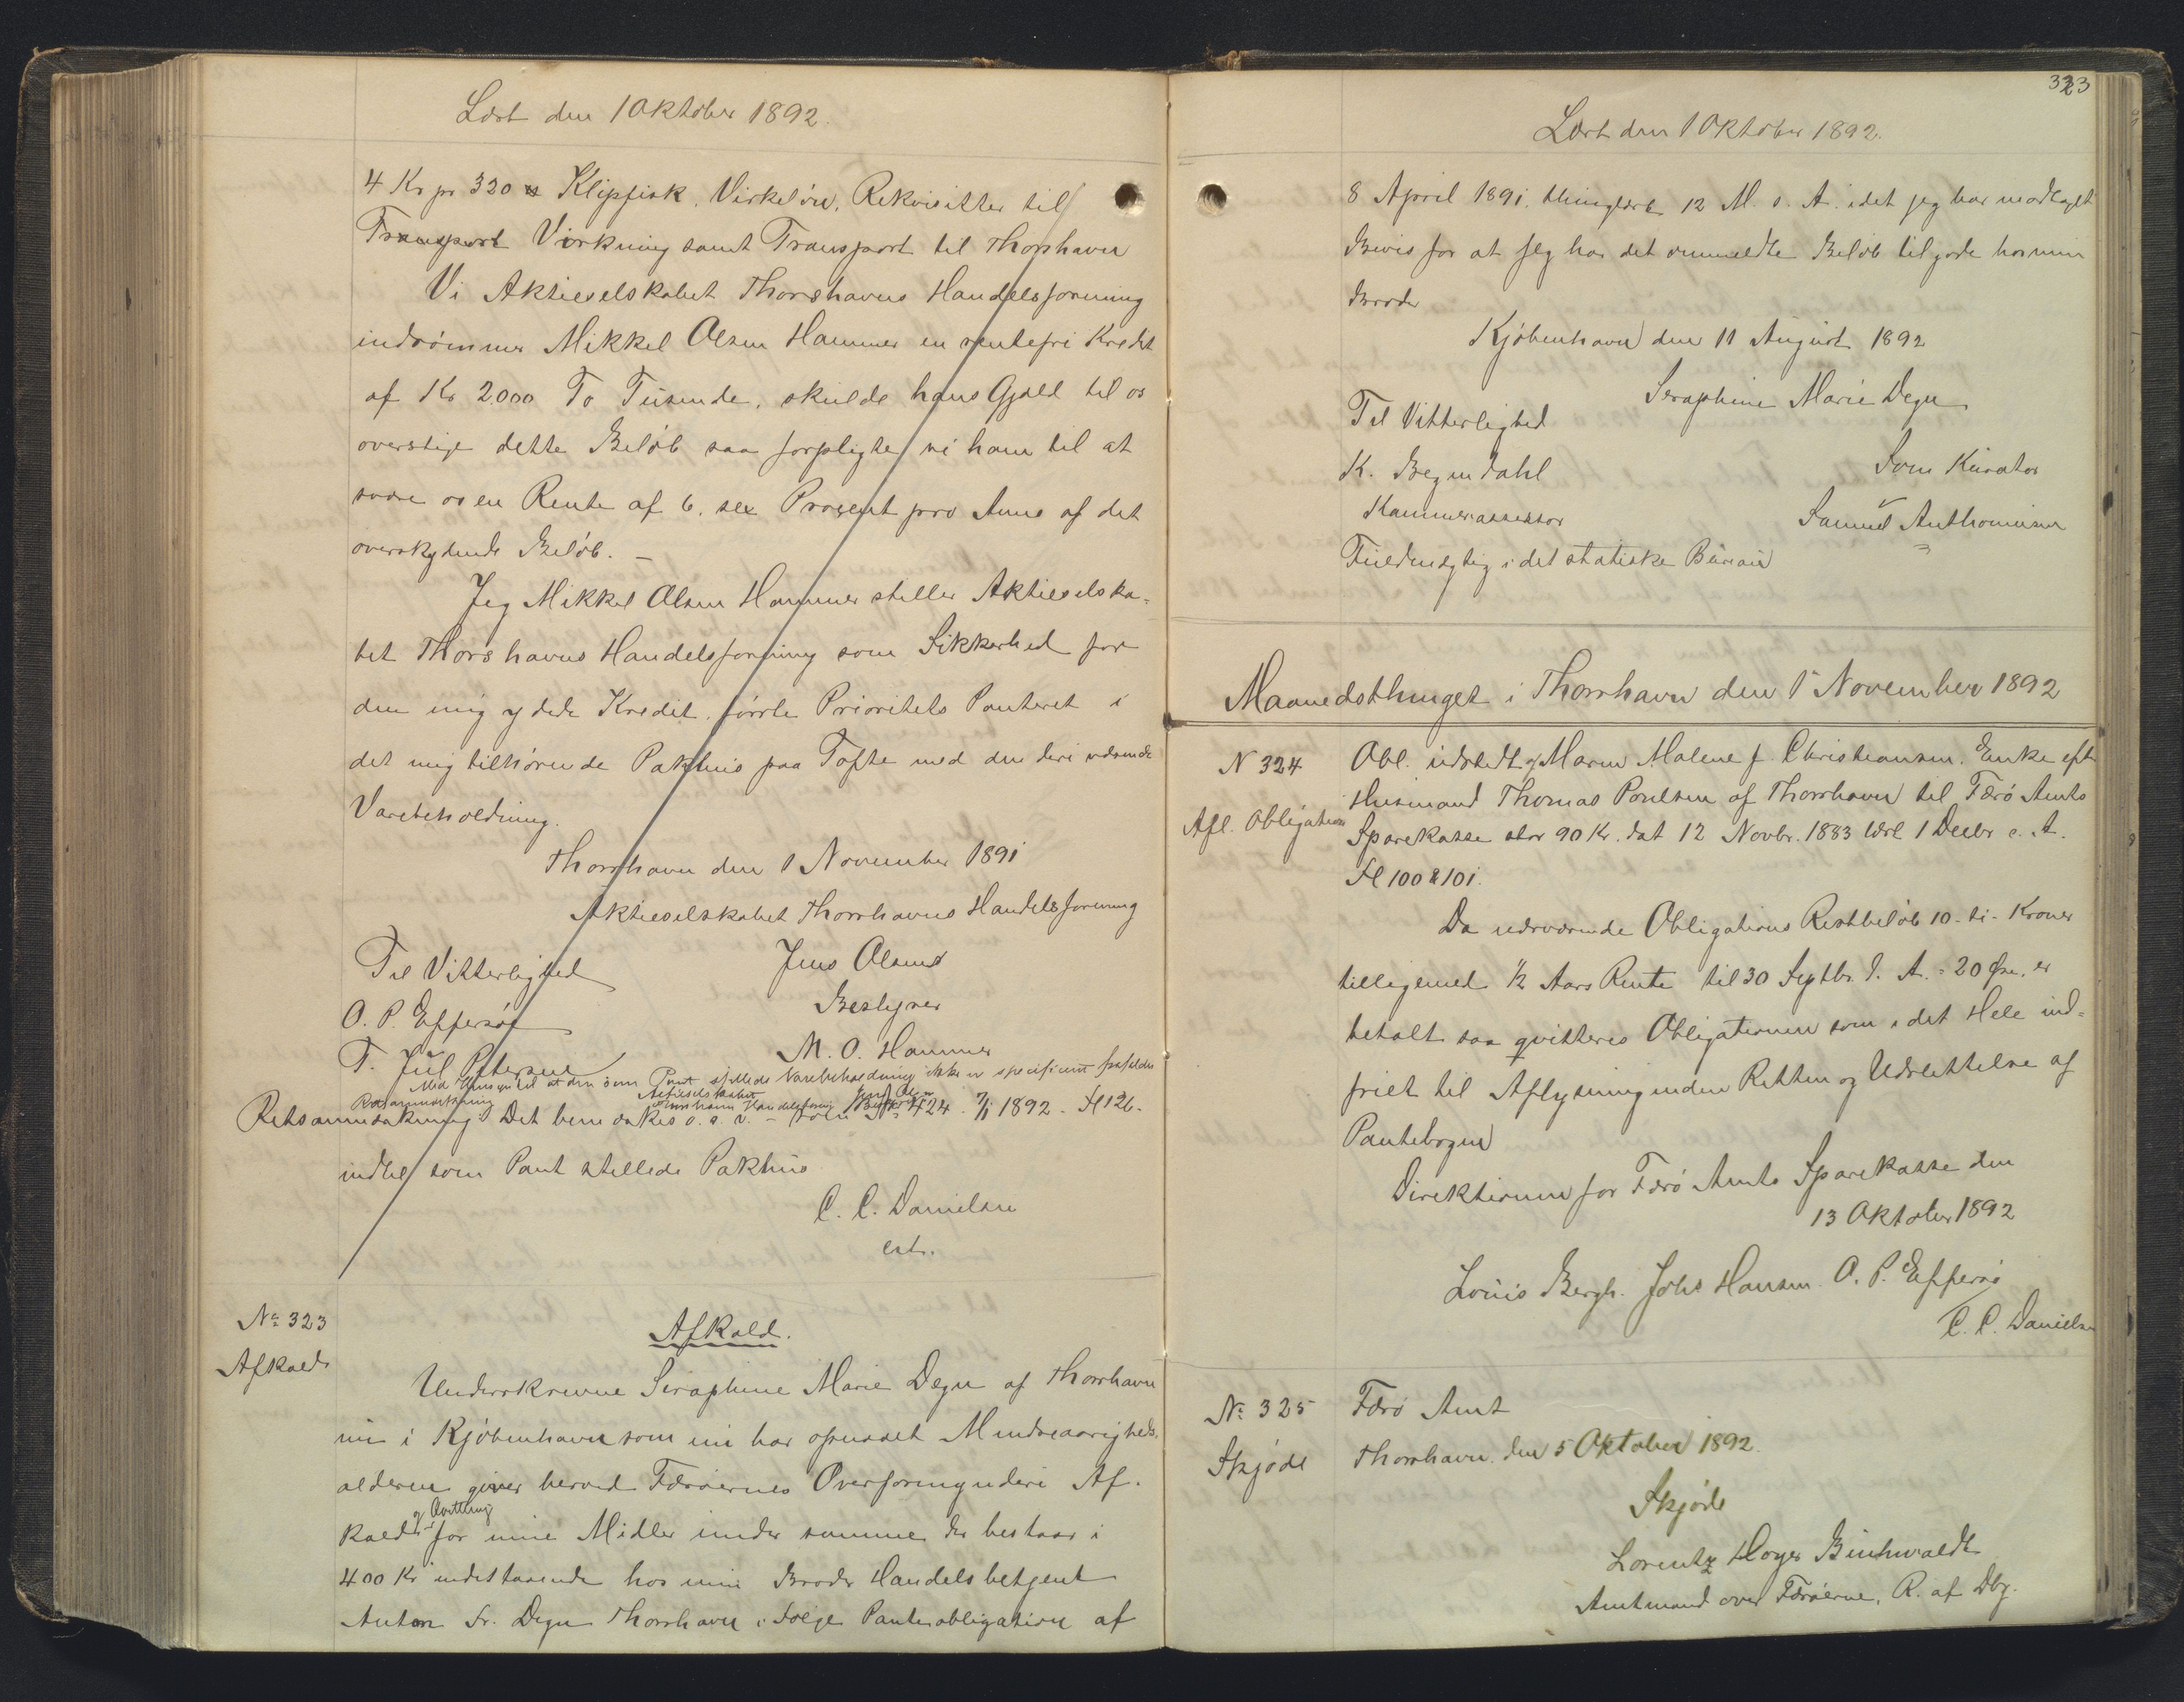 Læst den 1 Oktober 1892.
4 Kr pr 320 ℔ Klipfisk, Virkeløn, Rekvisitter til
Transport Virkning samt Transport til Thorshavn
Vi Aktieselskabet Thorshavns Handelsforening
indrømmer Mikkel Olsen Hammer en rentefri Kredit
af Kr 2.000 To Tusende, skulde hans Gjæld til os
overstige dette Beløb saa forpligte vi ham til at
svare os en Rente af 6. sex Procent pro Anno af det
overskydende Beløb. —
Jeg Mikkel Olsen Hammer stiller Aktieselska-
bet Thorshavns Handelsforening som Sikkerhed for
den mig ydede Kredit, første Prioritets Panteret i
det mig tilhørende Pakhus paa Tofte med den deri værende
Varebeholdning.
Thorshavn den 1 November 1891
Aktieselskabet Thorshavns Handelsforening
Til Vitterlighed Jens Olsen
O. P. Effersøe Bestyrer
T. Juul Petersen M. O. Hammer
Med Hensyn til at den som Pant stillede Varebeholdning ikke er specificeret
Retsanmærkning Aktieselskabet Jens Olsen
Thorshavns Handelsforening Bestyrer
Retsanmærkning: Det bemærkes o. s. v. – No 424. 7/1 1892. Fl 126.
indtil som Pant stillede Pakhus
C. C. Danielsen
cst.
No 323
Afkald
Afkald.
Underskrevne Seraphine Marie Degn af Thorshavn
nu i Kjöbenhavn som nu har opnaaet Mindreaarigheds-
alderen giver herved Færøernes Overformynderi Af-
og Qvittering
kald for mine Midler under samme der bestaar i
400 Kr indestaaende hos min Broder Handelsbetjent
Anton Fr. Degn Thorshavn i Følge Panteobligation af
323
Læst den 1 Oktober 1892.
8 April 1891. thinglæst 12 M. s. A. idet jeg har modtaget
Bevis for at jeg har det ommeldte Beløb tilgode hos min
Broder
Kjöbenhavn den 11 August 1892
Seraphine Marie Degn
Til Vitterlighed
K. Bregndahl Som Kurator
Kammerassessor Samuel Anthoniusen
Fuldmægtig i det statiske Bureau
Maanedsthinget i Thorshavn den 1 November 1892
N 324
Afl. Obligation
Obl. udstedt af Maren Malene f. Christiansen. Enke eft
Husmand Thomas Poulsen af Thorshavn til Færö Amts
Sparekasse stor 90 Kr. dat 12 Novbr. 1883 læst 1 Decbr s. A.
Fl 100 & 101.
Da nærværende Obligations Restbeløb 10 - ti - Kroner
tilligemed 1/2 Aars Rente til 30 Septbr. d. A. = 20 Øre, er
betalt saa qvitteres Obligationen som i det Hele ind-
friet til Aflysning inden Retten og Udslettelse af
Pantebogen
Direktionen for Færö Amts Sparekasse den
13 Oktober 1892
Louis Bergh. Johs Hansen. O. P. Effersöe
C. C. Danielsen
No 325
Skjöde
Færö Amt
Thorshavn. den 5 Oktober 1892.
Skjöde
Lorentz Hoyer Buchwaldt
Amtmand over Færöerne, R. af Dbg.